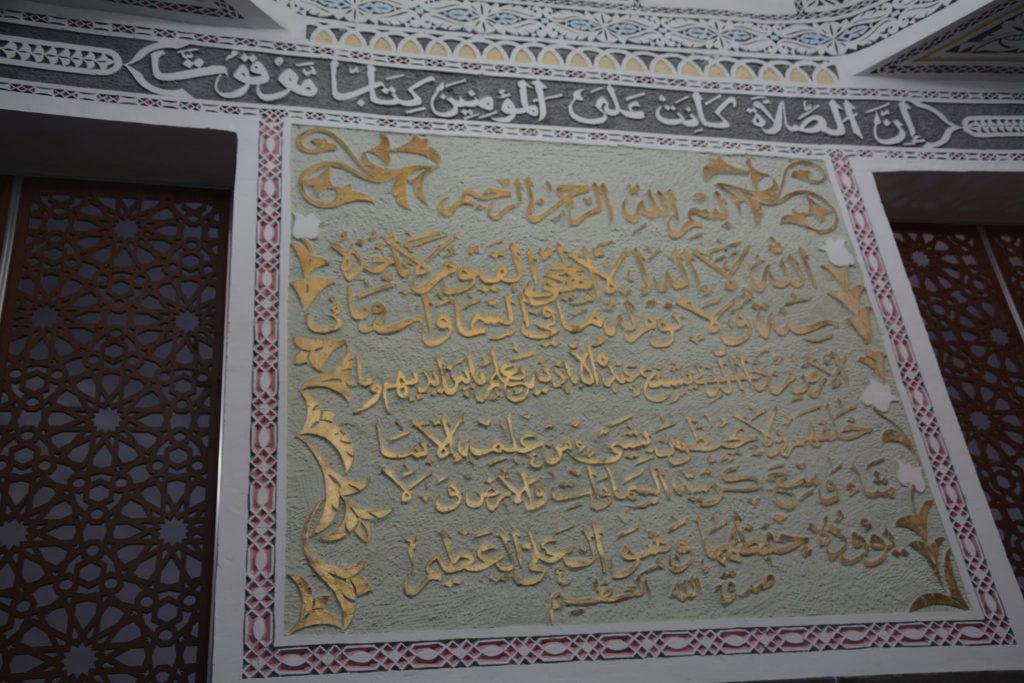 إِنَّ الصَّلَاةَ كَانَتْ عَلَى الْمُؤْمِنِينَ كِتَابًا مَوْقُوتًا
بِسْمِ اللهِ الرَّحْمٰنِ الرَّحِيمِ
اللهُ لَا إِلٰهَ إِلَّا هُوَ الْحَيُّ الْقَيُّومُ لَا تَأْخُذُهُ
سِنَةٌ وَلَا نَوْمٌ لَهُ مَا فِي السَّمَاوَاتِ وَمَا فِي
الْأَرْضِ مَنْ ذَا الَّذِي يَشْفَعُ عِنْدَهُ إِلَّا بِإِذْنِهِ يَعْلَمُ مَا بَيْنَ أَيْدِيهِمْ وَمَا
خَلْفَهُمْ وَلَا يُحِيطُونَ بِشَيْءٍ مِنْ عِلْمِهِ إِلَّا بِمَا
شَاءَ وَسِعَ كُرْسِيُّهُ السَّمَاوَاتِ وَالْأَرْضَ وَلَا
يَؤُودُهُ حِفْظُهُمَا وَهُوَ الْعَلِيُّ الْعَظِيمُ
صدق الله العظيم